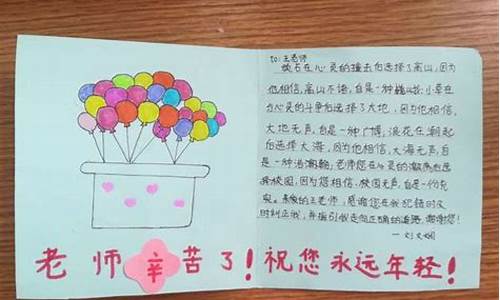 to:王老师
磐石在心灵的撞击后选择了高山,因为
他相信,高山不语,自是一种巍峨;小草在
心灵的斗争后选择了大地,因为他相信,
大地无声,自是一种广博;浪花在潮起
后选择大海,因为他相信,大海无声,自
是一种浩瀚;老师您在心灵的潮涌后选
择校园,因为您相信,校园无声,自是一份充
实。亲爱的王老师,感谢您在我犯错时及
时纠正我,并指引我走向正确的道路,谢谢您!
老师辛苦了!祝您永远年轻!